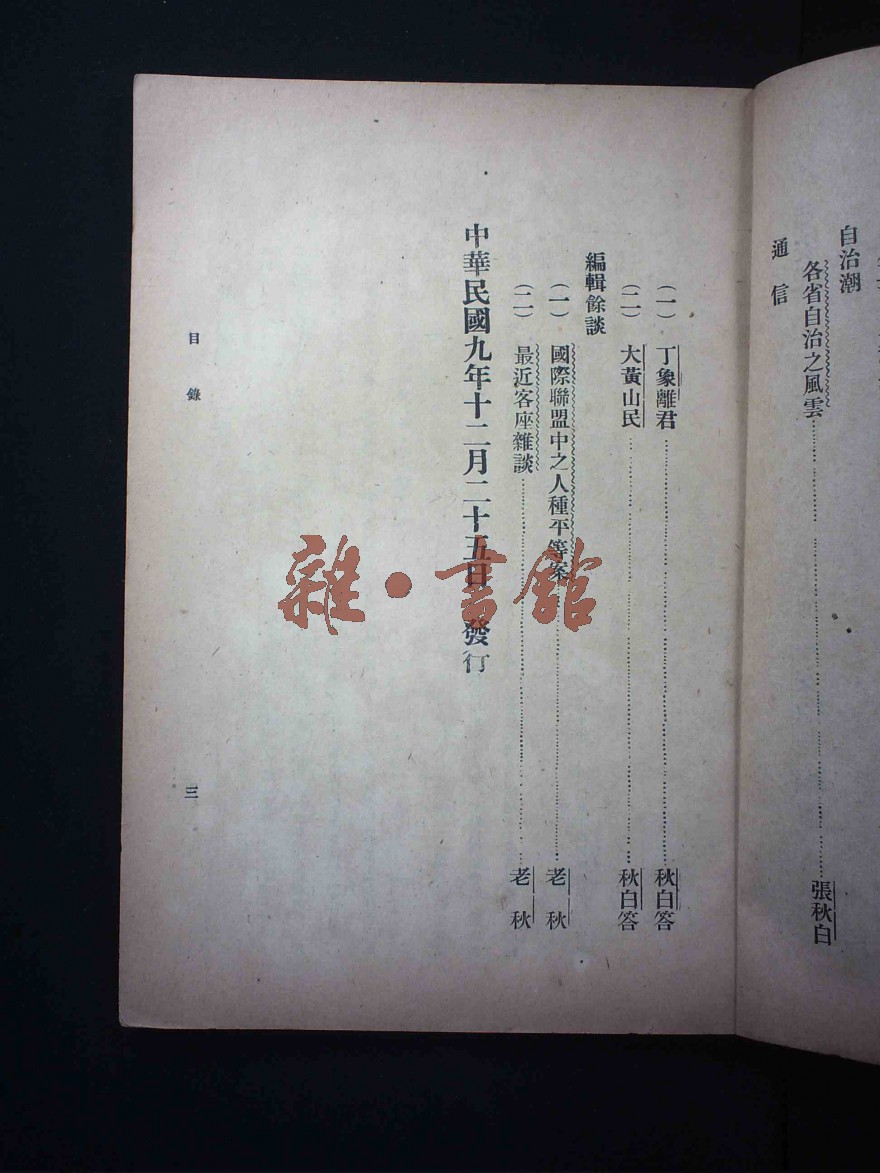 自治潮
各省自治之風雲……張秋白
通信
(一) 丁象離君……秋白答
(二) 大黃山民……秋白答
編輯餘談
(一) 國際聯盟中之人種平等案……老秋
(二) 最近客座雜談……老秋
中華民國九年十二月二十五日發行
目錄
三
雜·書館